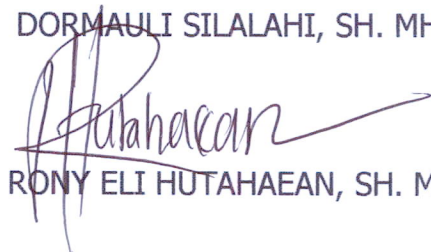 DORMAULI SILALAHI, SH. MH
Hutahaean
RONY ELI HUTAHAEAN, SH. M